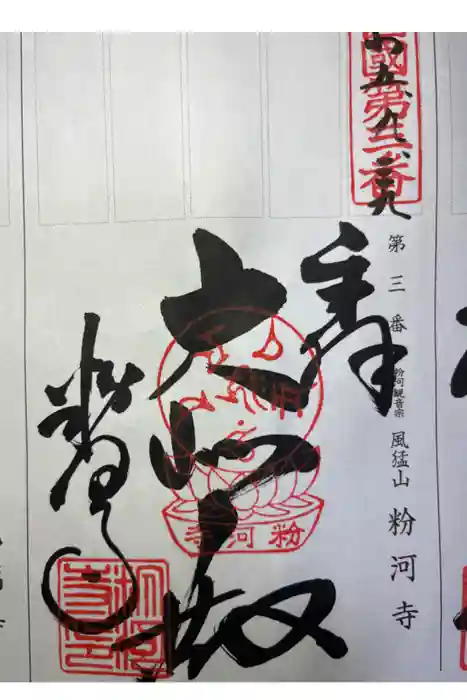 國第三番
五、九、二九
第三番 粉河観音宗 風猛山 粉河寺
奉
大悲殿
粉河寺
粉河寺